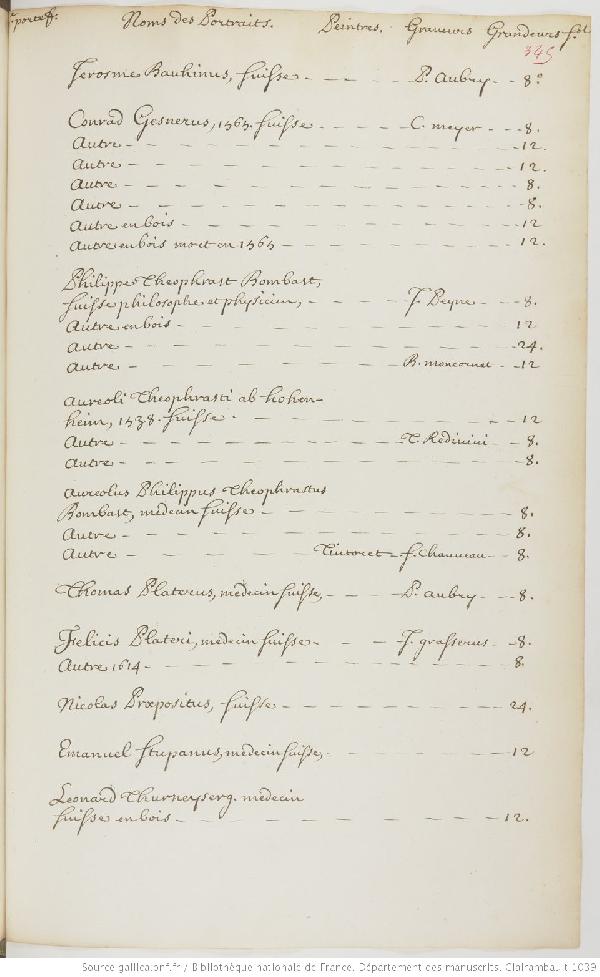 portef. Noms des Portraits. Peintres. Graveurs Grandeurs
345
Jerosme Bauhinus, suisse - - - - P. Aubry - - 8°
Conrad Gesnerus, 1565. suisse - - - - C. meyer - - 8.
Autre - - - - 12.
Autre - - - - 12.
Autre - - - - 8.
Autre - - - - 8.
Autre en bois - - - - 12
Autre en bois mort en 1565 - - - - 12.
Philippe Theophrast Bombast,
suisse philosophe et physicien, - - - - J. Peyne - - 8.
Autre en bois - - - - 12
Autre - - - - 24.
Autre - - - - B. moncornet - - 12
Aureoli Theophrasti ab hohen-
heim, 1538. suisse - - - - 12
Autre - - - - T. Redinini - - 8.
Autre - - - - 8.
Aureolus Philippus Theophrastus
Bombast, medecin suisse - - - - 8.
Autre - - - - 8.
Autre - - - - Tintoret - f. Chauveau - - 8.
Thomas Platerus, medecin suisse, - - - - P. aubry - - 8.
Felicis Plateri, medecin suisse - - - - J. grasserus - - 8.
Autre 1614 - - - - 8.
Nicolas Præpositus, suisse - - - - 24.
Emanuel Stupanus, medecin suisse, - - - - 12
Leonard Thurneyserg. medecin
suisse en bois - - - - 12.
Source gallica.bnf.fr / Bibliothèque nationale de France. Département des manuscrits. Clairambault 1039